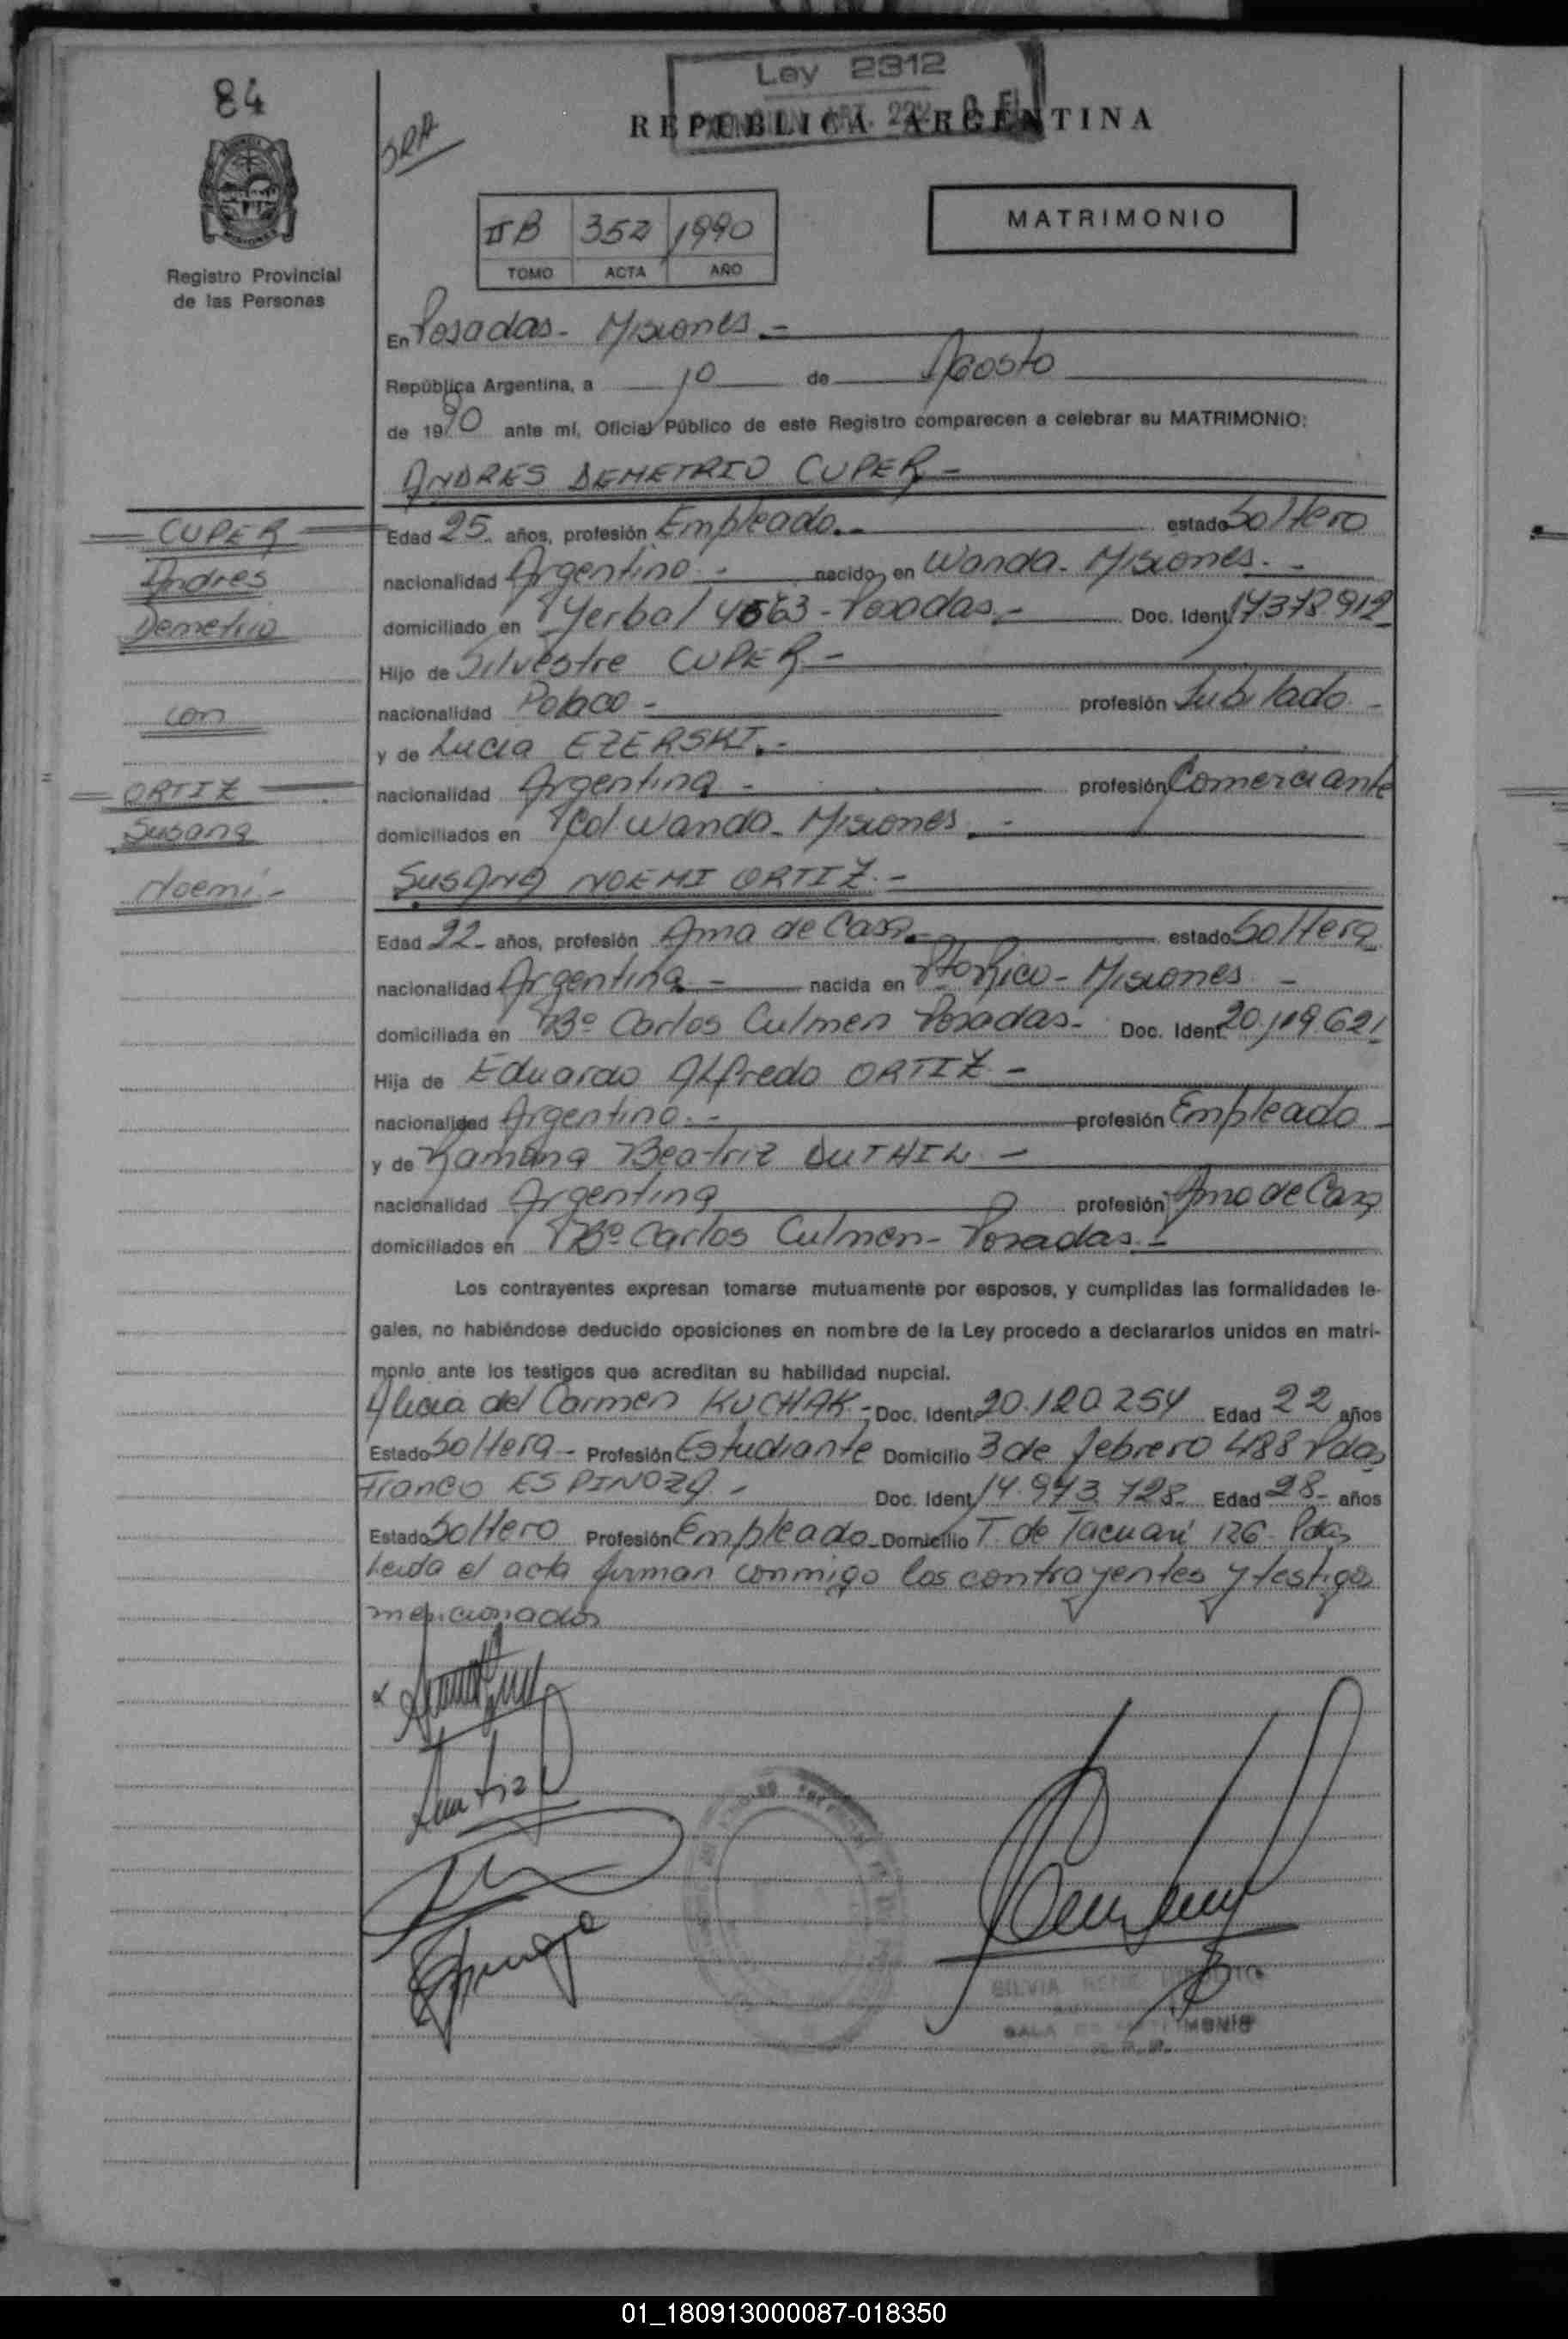 84
Ley 2312
REPUBLICA ARGENTINA
MATRIMONIO
II B 352 1990
TOMO ACTA AÑO
MISIONES
Registro Provincial
de las Personas
En Posadas - Misiones.-
República Argentina, a 10 de Agosto
de 1990 ante mí, Oficial Público de este Registro comparecen a celebrar su MATRIMONIO:
ANDRES DEMETRIO CUPER-
CUPER
Andres
Demetrio
con
ORTIZ
Susana
Noemi.-
Edad 25. años, profesión Empleado.- estado Soltero
nacionalidad Argentino.- nacido en Wanda - Misiones.-
domiciliado en Yerbal 4663 - Posadas.- Doc. Ident. 17.378.912
Hijo de Silvestre CUPER.-
nacionalidad Polaco - profesión Jubilado -
y de Lucia EZERSKI.-
nacionalidad Argentina - profesión Comerciante
domiciliados en Col Wanda - Misiones.-
SUSANA NOEMI ORTIZ.-
Edad 22- años, profesión Ama de Casa.- estado Soltera
nacionalidad Argentina.- nacida en Pto Rico - Misiones -
domiciliada en Bº Carlos Culmen Posadas.- Doc. Ident. 20.119.621
Hija de Eduardo Alfredo ORTIZ -
nacionalidad Argentino.- profesión Empleado -
y de Ramona Beatriz DUTHIL -
nacionalidad Argentina profesión Ama de Casa
domiciliados en Bº Carlos Culmen - Posadas.-
Los contrayentes expresan tomarse mutuamente por esposos, y cumplidas las formalidades le-
gales, no habiéndose deducido oposiciones en nombre de la Ley procedo a declararlos unidos en matri-
monio ante los testigos que acreditan su habilidad nupcial.
Alicia del Carmen KUCHAK - Doc. Ident. 20.120.254 Edad 22 años
Estado Soltera - Profesión Estudiante Domicilio 3 de febrero 488 Pdas
Franco ESPINOZA - Doc. Ident. 14.943.728 Edad 28- años
Estado Soltero Profesión Empleado - Domicilio T. de Tacuari 126 - Pdas
Leida el acta firman conmigo los contrayentes y testigos
mencionados
SILVIA RENE
SALA DE MATRIMONIO
01_180913000087-018350